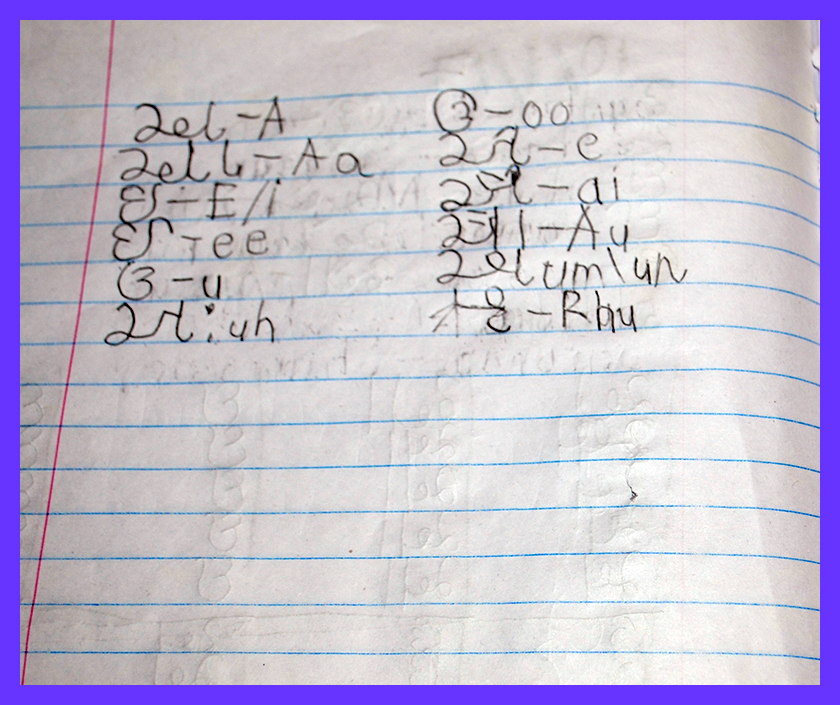 અ - A
આ - Aa
ઇ - E/i
ઈ - ee
ઉ - u
અ: uh
ઊ - oo
એ - e
ઐ - ai
ઔ - Au
અં um\un
ઋ - Rhu